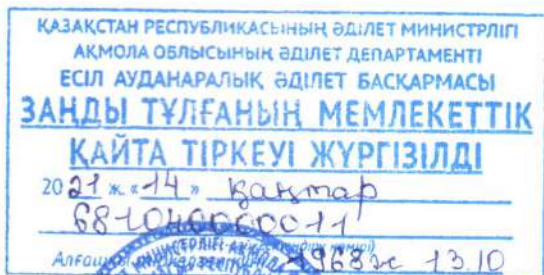 ҚАЗАҚСТАН РЕСПУБЛИКАСЫНЫҢ ӘДІЛЕТ МИНИСТРЛІГІ
АҚМОЛА ОБЛЫСЫНЫҢ ӘДІЛЕТ ДЕПАРТАМЕНТІ
ЕСІЛ АУДАНАРАЛЫҚ ӘДІЛЕТ БАСҚАРМАСЫ
ЗАҢДЫ ТҰЛҒАНЫҢ МЕМЛЕКЕТТІК
ҚАЙТА ТІРКЕУІ ЖҮРГІЗІЛДІ
20 21 ж. «14» қаңтар
681040000011
1968 ж 13.10